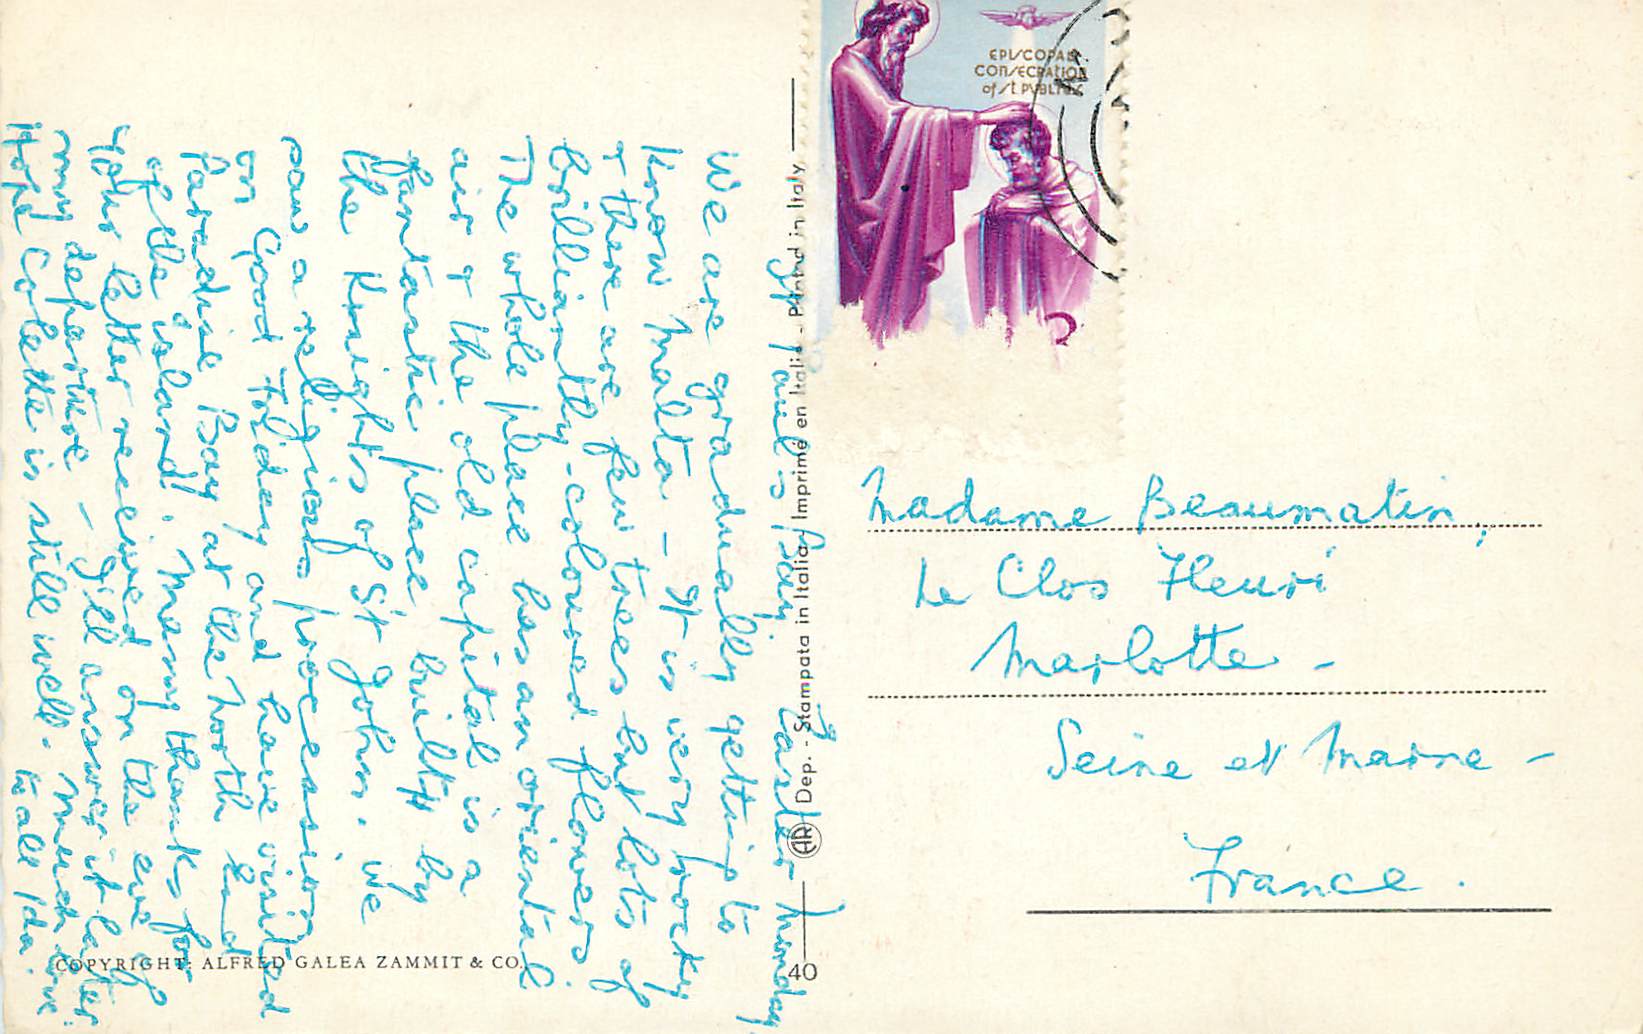 EPISCOPAL
CONSECRATION
of St. PUBLIUS
St Paul's Bay. Easter Monday
We are gradually getting to
know Malta - It is very rocky
& there are few trees but lots of
brilliantly-coloured flowers.
The whole place has an oriental
air & the old capital is a
fantastic place built by
the Knights of St John. We
saw a religious procession
on Good Friday and have visited
Paradise Bay at the North End
of the island. Many thanks for
your letter received on the eve of
my departure - I'll answer it later.
Hope Colette is still well. Much love
to all Ida.
Dep. - Stampata in Italia - Imprimé en Italie - Printed in Italy
AR
40
COPYRIGHT: ALFRED GALEA ZAMMIT & CO.
Madame Beaumatin,
Le Clos Fleuri
Marlotte -
Seine et Marne -
France.